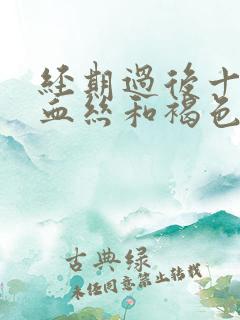 經期過後十
血絲和褐色
古典绿
未经同意禁止转载